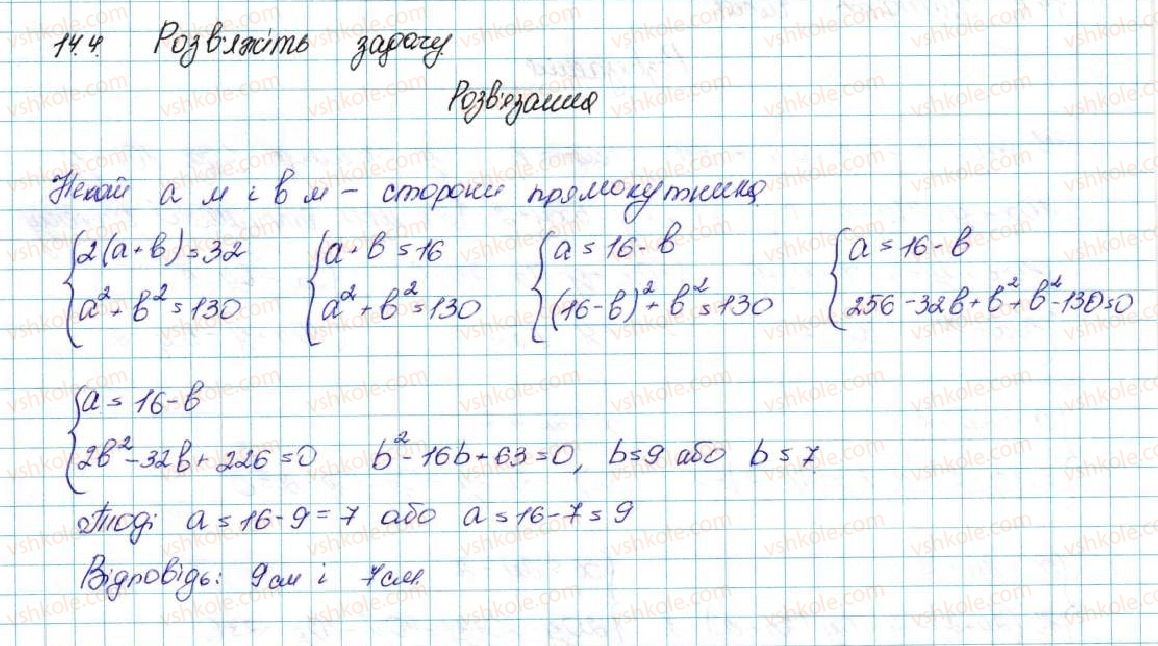 14.4. Розв'яжіть задачу
Розв'язання
Нехай a м і b м – сторони прямокутника
{2(a+b)=32 {a+b=16 {a=16-b {a=16-b
a²+b²=130 a²+b²=130 (16-b)²+b²=130 256-32b+b²+b²-130=0
{a=16-b
2b²-32b+226=0 b²-16b+63=0, b=9 або b=7
Тоді a=16-9=7 або a=16-7=9
Відповідь: 9см і 7см.